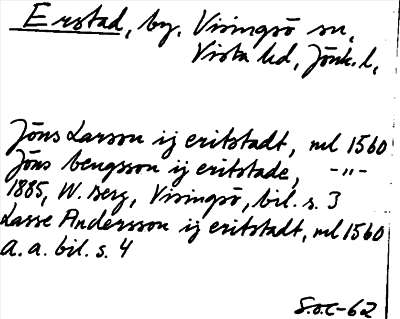 Erstad, by. Visingsö sn,
Vista hd, Jönk. l,
Jöns Larson ij eritstadt, ml 1560
Jöns bengsson ij eritstade, -"-
1885, W. Berg, Visingsö, bil. s. 3
Lasse Andersson ij eritstadt, ml 1560
a. a. bil. s. 4
S.o.C-62